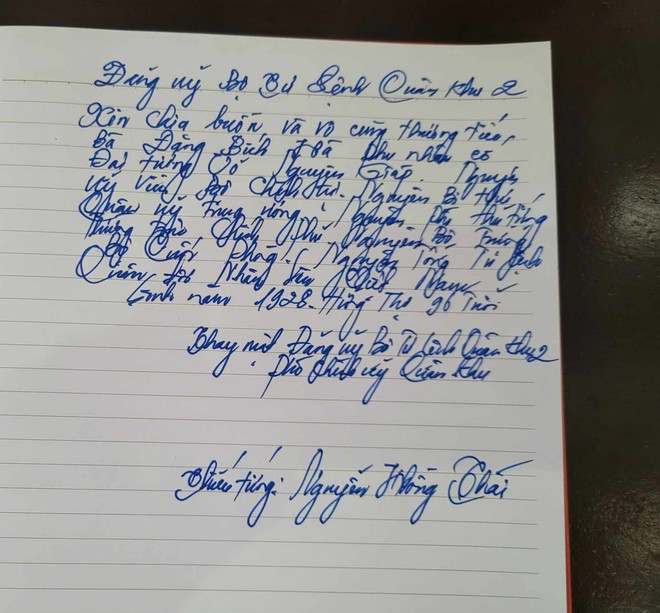 Đảng uỷ Bộ Tư lệnh Quân khu 2
Xin chia buồn và vô cùng thương tiếc,
bà Đặng Bích Hà Phu nhân cố
Đại tướng Võ Nguyên Giáp. Nguyên
uỷ viên Bộ Chính trị. Nguyên Bí thư
Quân uỷ Trung ương, Nguyên Phó thủ tướng
thường trực Chính Phủ Nguyên Bộ trưởng
Bộ Quốc Phòng, Nguyên Tổng Tư lệnh
Quân đội Nhân dân Việt Nam
Sinh năm 1928. Hưởng Thọ 96 Tuổi
Thay mặt Đảng uỷ Bộ Tư lệnh Quân khu 2
Phó chính uỷ Quân khu
Thiếu tướng: Nguyễn Hồng Thái